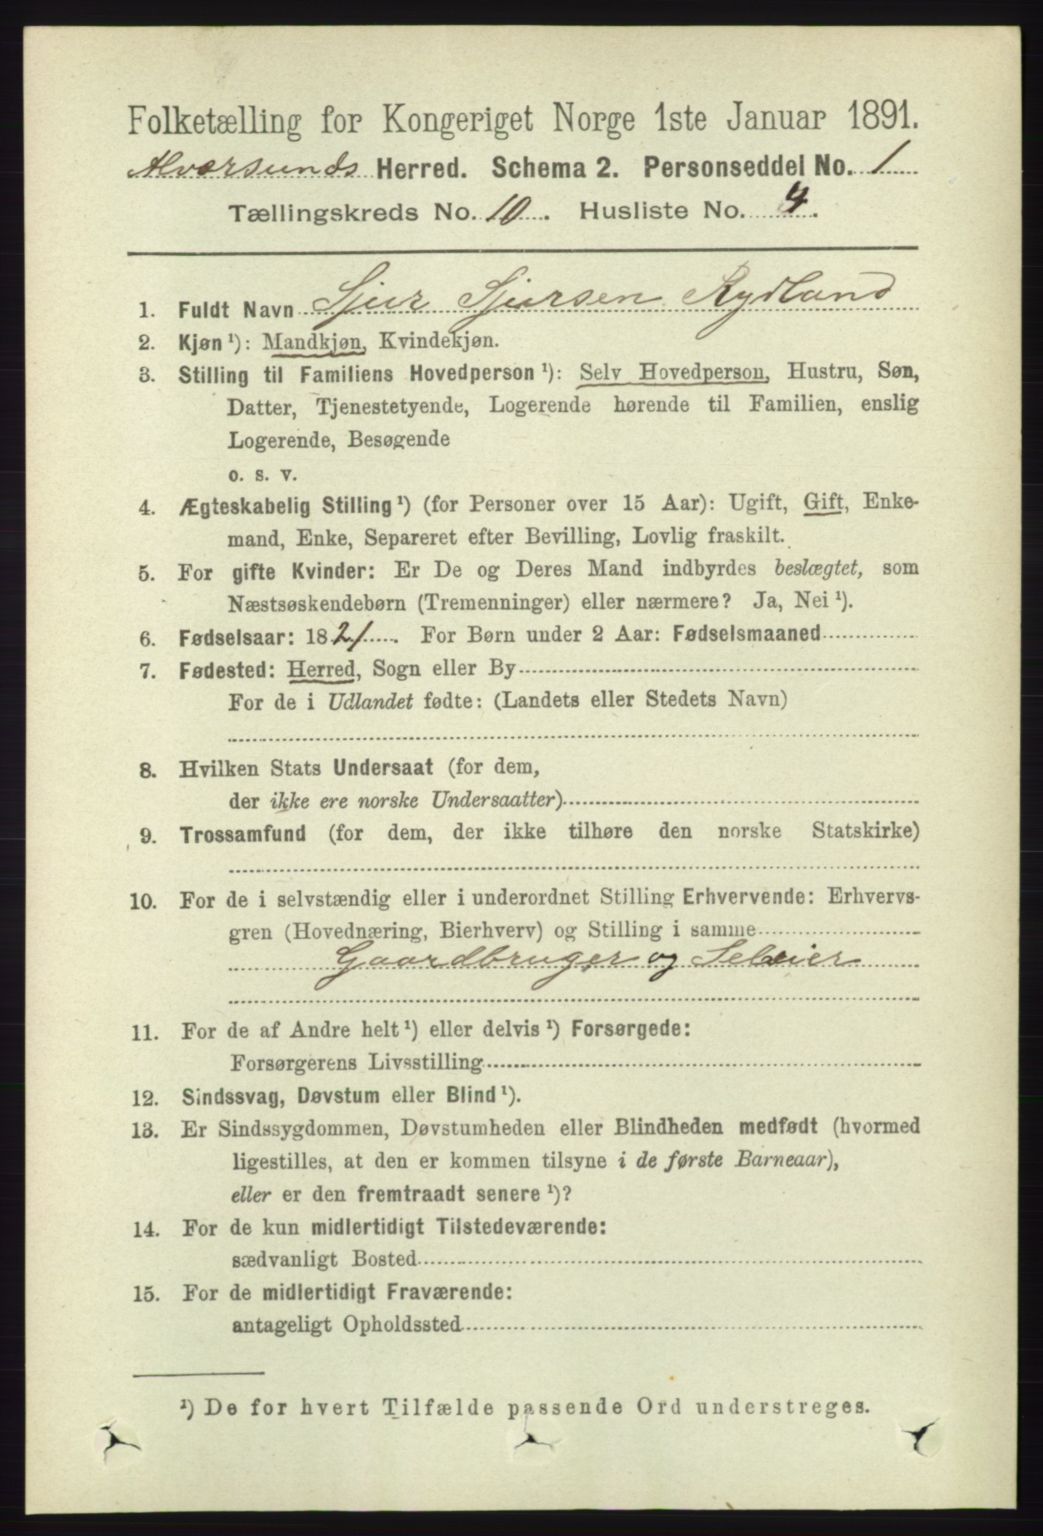 Folketælling for Kongeriget Norge 1ste Januar 1891.
Alversunds Herred. Schema 2. Personseddel No. 1
Tællingskreds No. 10. Husliste No. 4.
1. Fuldt Navn Sjur Sjursen Rydland
2. Kjøn ¹): Mandkjøn, Kvindekjøn.
3. Stilling til Familiens Hovedperson ¹): Selv Hovedperson, Hustru, Søn,
Datter, Tjenestetyende, Logerende hørende til Familien, enslig
Logerende, Besøgende
o. s. v.
4. Ægteskabelig Stilling ¹) (for Personer over 15 Aar): Ugift, Gift, Enke-
mand, Enke, Separeret efter Bevilling, Lovlig fraskilt.
5. For gifte Kvinder: Er De og Deres Mand indbyrdes beslægtet, som
Næstsøskendebørn (Tremenninger) eller nærmere? Ja, Nei ¹).
6. Fødselsaar: 1821. For Børn under 2 Aar: Fødselsmaaned
7. Fødested: Herred, Sogn eller By
For de i Udlandet fødte: (Landets eller Stedets Navn)
8. Hvilken Stats Undersaat (for dem,
der ikke ere norske Undersaatter)
9. Trossamfund (for dem, der ikke tilhøre den norske Statskirke)
10. For de i selvstændig eller i underordnet Stilling Erhvervende: Erhvervs-
gren (Hovednæring, Bierhverv) og Stilling i samme
Gaardbruger og Seleier
11. For de af Andre helt ¹) eller delvis ¹) Forsørgede:
Forsørgerens Livsstilling
12. Sindssvag, Døvstum eller Blind ¹).
13. Er Sindssygdommen, Døvstumheden eller Blindheden medfødt (hvormed
ligestilles, at den er kommen tilsyne i de første Barneaar),
eller er den fremtraadt senere ¹)?
14. For de kun midlertidigt Tilstedeværende:
sædvanligt Bosted
15. For de midlertidigt Fraværende:
antageligt Opholdssted
¹) De for hvert Tilfælde passende Ord understreges.